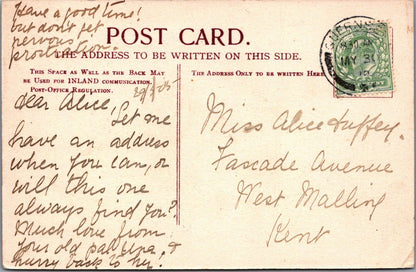 Have a good time!
but don't get
nervous
prostration.
POST CARD.
THE ADDRESS TO BE WRITTEN ON THIS SIDE.
THIS SPACE AS WELL AS THE BACK MAY
BE USED FOR INLAND COMMUNICATION.
POST-OFFICE REGULATION.
THE ADDRESS ONLY TO BE WRITTEN HERE.
dear Alice,
Let me
have an address
when you can, or
will this one
always find you?
Much love from
your old pal &
hurry back to her!
Miss Alice Duffey.
Cascade Avenue
West Malling
Kent
MY 30